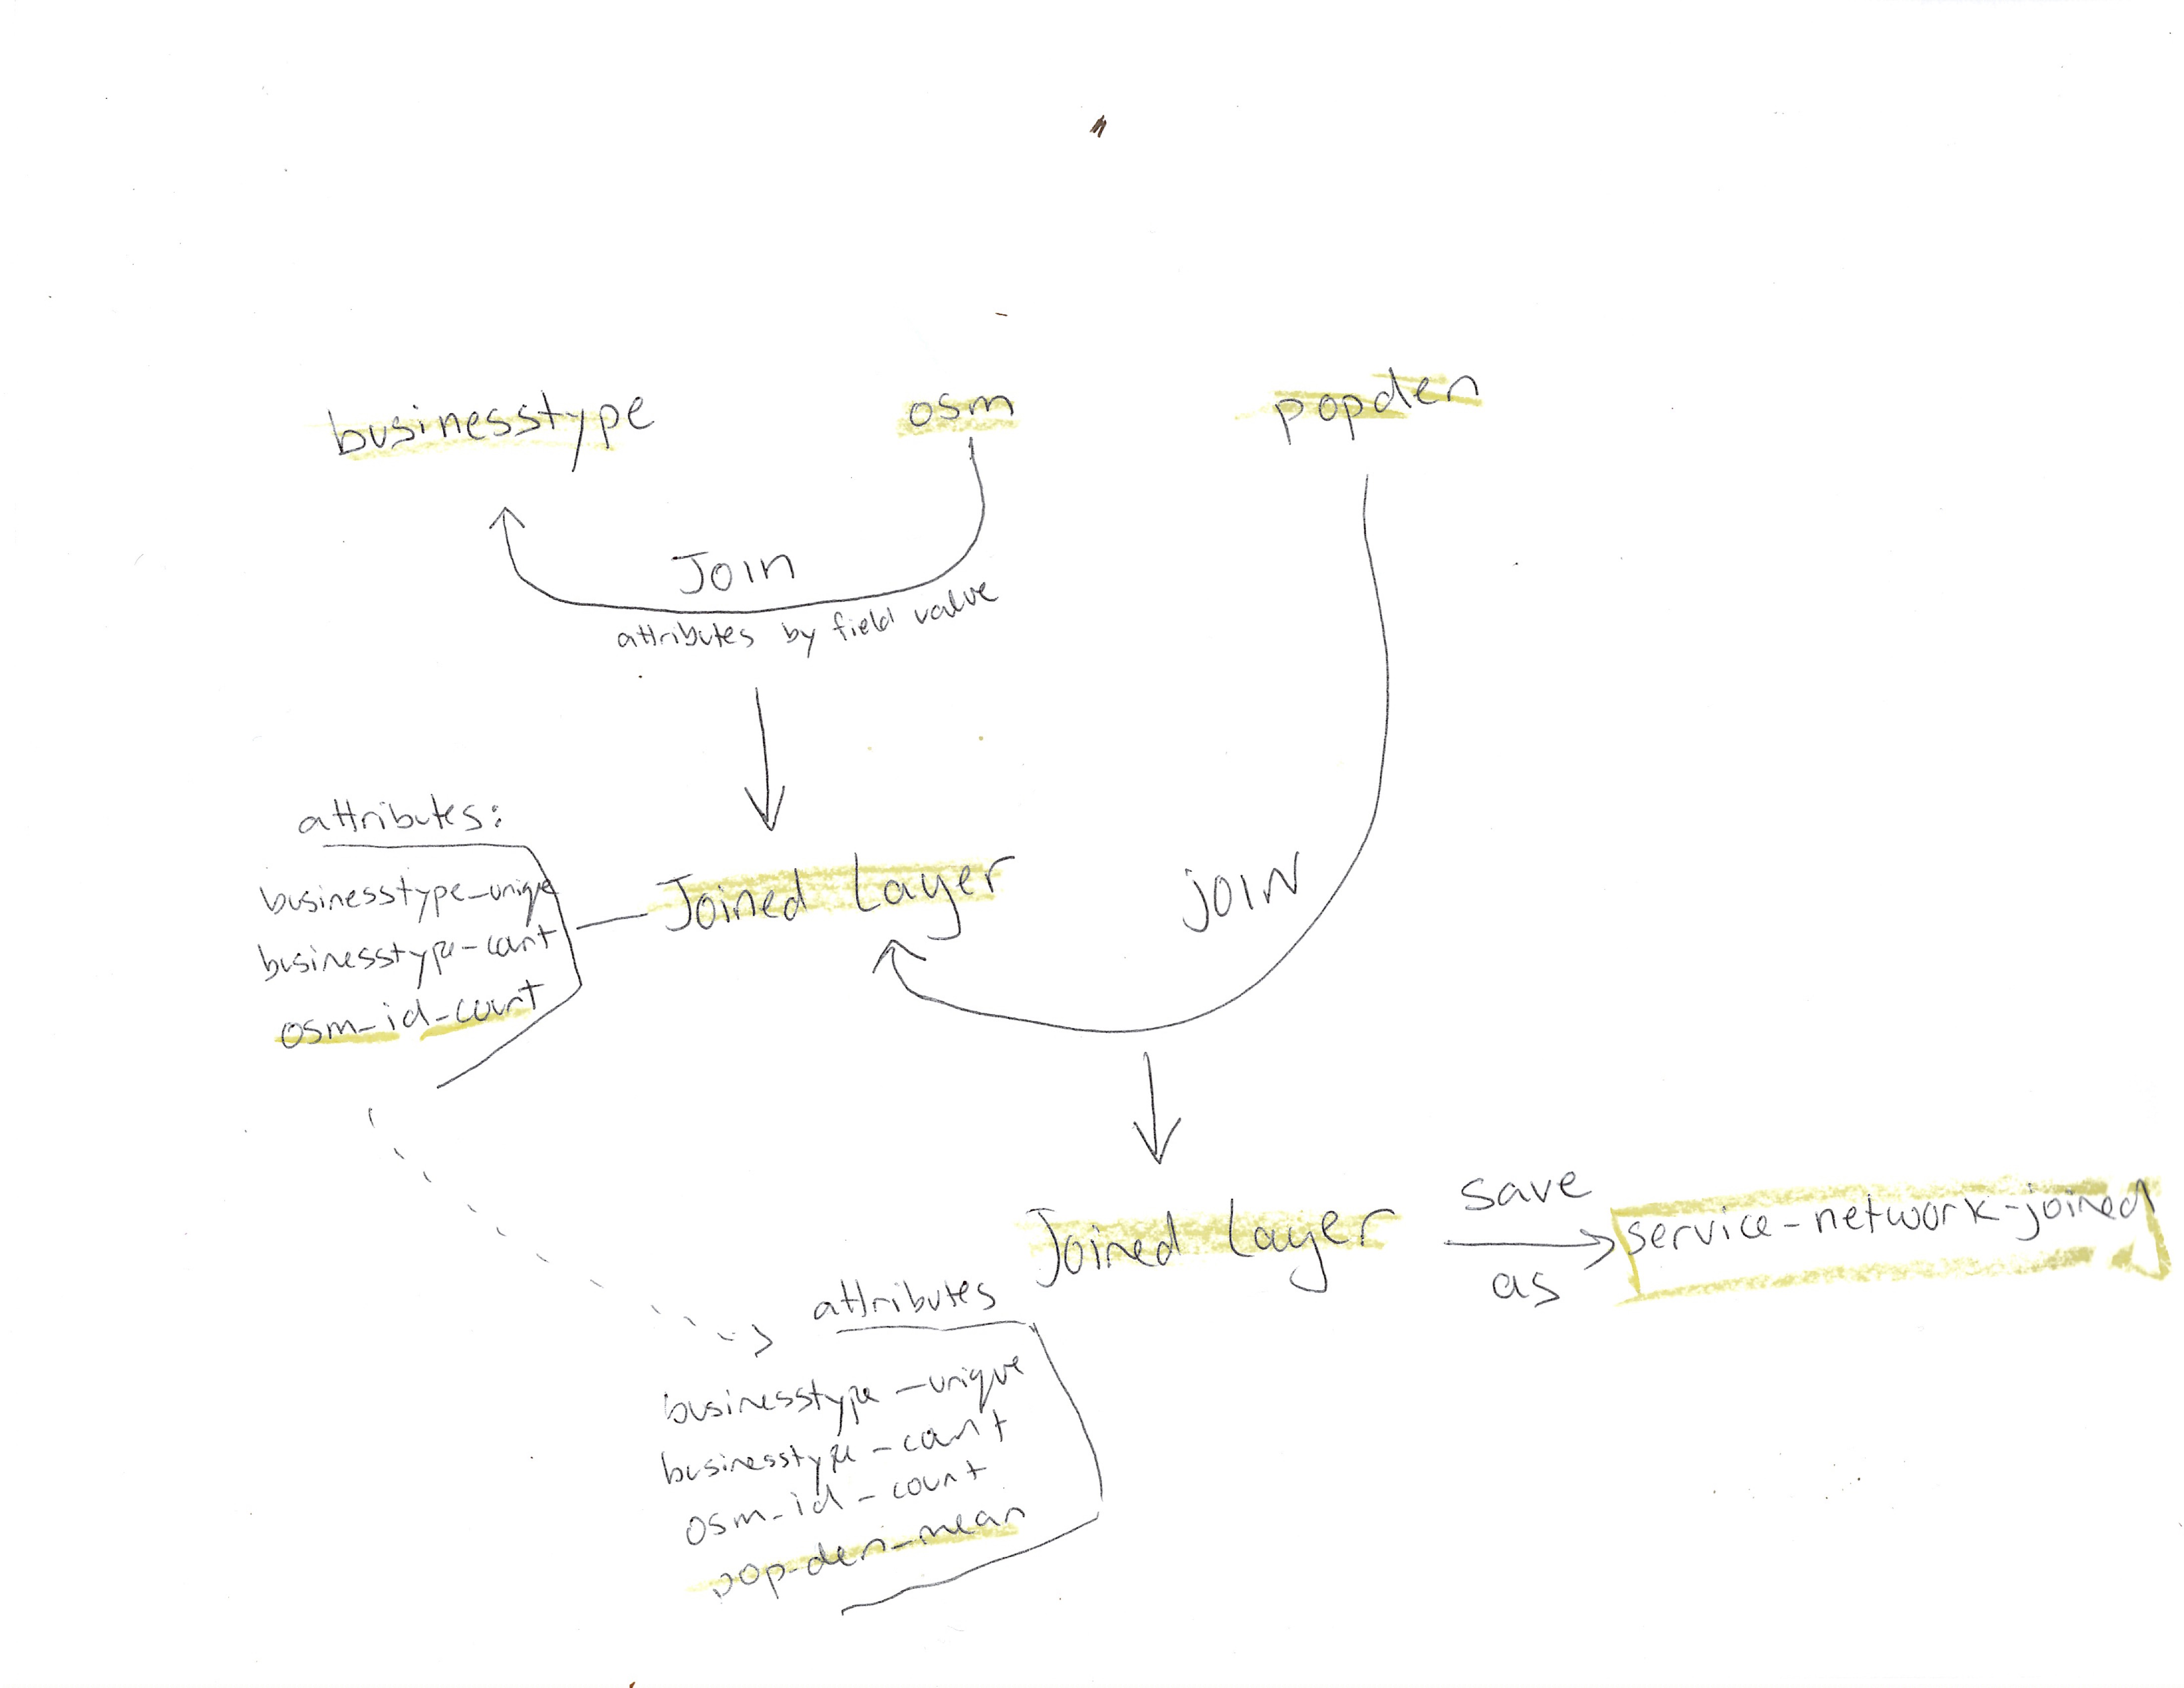 businesstype
osm
popden
Join
attributes by field value
attributes:
businesstype_unique
businesstype-count
osm_id_count
Joined Layer
JOIN
Joined Layer
save
as
service-network-joined
attributes
businesstype_unique
businesstype-count
osm_id-count
pop-den-mean